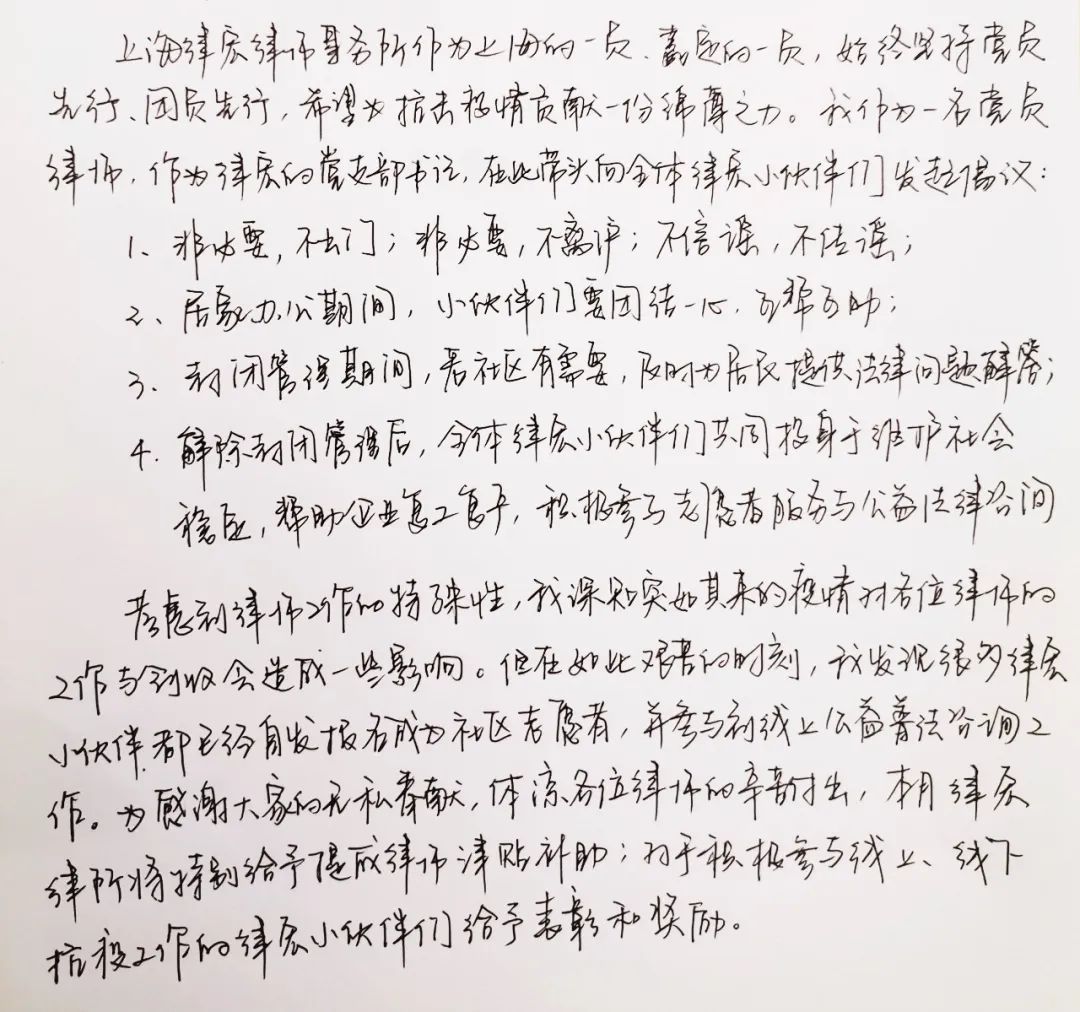 上海律宏律师事务所作为上海的一员、嘉定的一员，始终坚持党员
先行、团员先行，希望为抗击疫情贡献一份绵薄之力。我作为一名党员
律师，作为律宏的党支部书记，在此带头向全体律宏小伙伴们发起倡议：
1、非必要，不出门；非必要，不离沪；不信谣，不传谣；
2、居家办公期间，小伙伴们要团结一心，互帮互助；
3、封闭管理期间，若社区有需要，及时为居民提供法律问题解答；
4、解除封闭管理后，全体律宏小伙伴们共同投身于维护社会
稳定，帮助企业复工复产，积极参与志愿者服务与公益法律咨询
考虑到律师工作的特殊性，我深知突如其来的疫情对各位律师的
工作与创收会造成一些影响。但在如此艰苦的时刻，我发现很多律宏
小伙伴都已经自发报名成为社区志愿者，并参与到线上公益普法咨询工
作。为感谢大家的无私奉献，体谅各位律师的辛苦付出，本月律宏
律所将特别给予提成律师津贴补助；对于积极参与线上、线下
抗疫工作的律宏小伙伴们给予表彰和奖励。